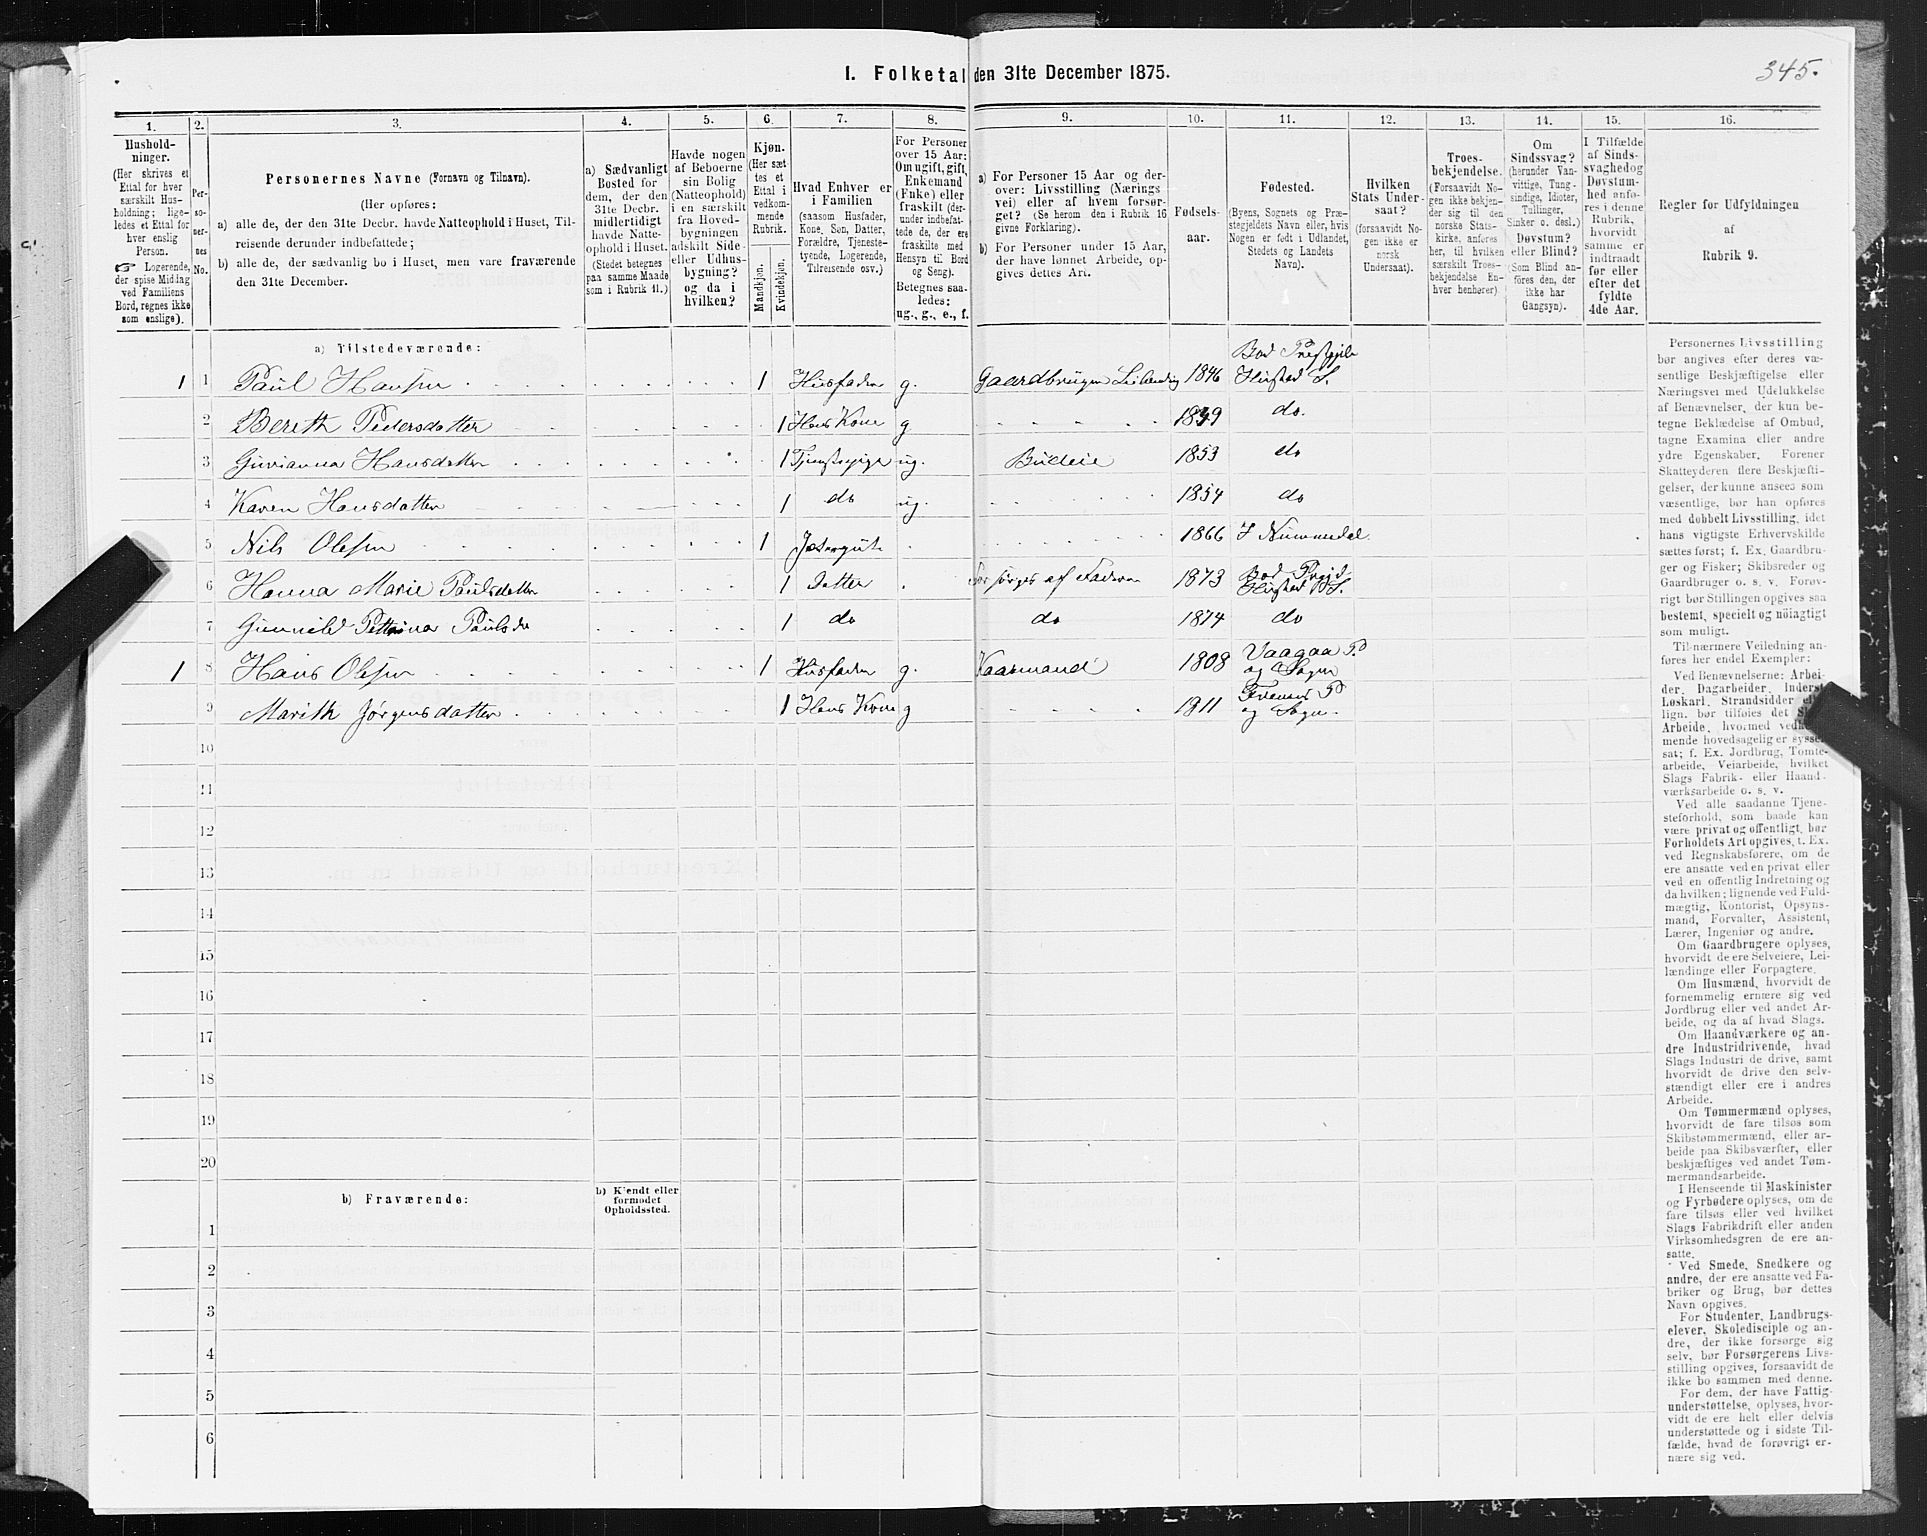 I. Folketal den 31te December 1875.
345.
1.
2.
3.
4.
5.
6.
7.
8.
9.
10.
11.
12.
13.
14.
15.
16.
Hushold-
ninger.
(Her skrives et
Ettal for hver
særskilt Hus-
holdning; lige-
ledes et Ettal for
hver enslig
Person.
☞ Logerende,
der spise Middag
ved Familiens
Bord, regnes ikke
som enslige).
Per-
so-
ner-
nes
No.
Personernes Navne (Fornavn og Tilnavn).
(Her opføres:
a) alle de, der den 31te Decbr. havde Natteophold i Huset, Til-
reisende derunder indbefattede;
b) alle de, der sædvanlig bo i Huset, men vare fraværende
den 31te December.
a) Sædvanligt
Bosted for
dem, der den
31te Decbr.
midlertidigt
havde Natte-
ophold i Huset.
(Stedet betegnes
paa samme Maade
som i Rubrik 11.)
Havde nogen
af Beboerne
sin Bolig
(Natteophold)
i en særskilt
fra Hoved-
bygningen
adskilt Side-
eller Udhus-
bygning?
og da i
hvilken?
Kjøn.
(Her sæt-
tes et
Ettal i
vedkom-
mende
Rubrik.
Mandkjøn.
Kvindekjøn.
Hvad Enhver er
i Familien
(saasom Husfader,
Kone, Søn, Datter,
Forældre, Tjeneste-
tyende, Logerende,
Tilreisende osv.)
For Personer
over 15 Aar:
Om ugift, gift,
Enkemand
(Enke) eller
fraskilt (der-
under indbefat-
tede de, der ere
fraskilte med
Hensyn til Bord
og Seng).
Betegnes saa-
ledes:
ug., g., e., f.
a) For Personer 15 Aar og der-
over: Livsstilling (Nærings
vei) eller af hvem forsør-
get? (Se herom den i Rubrik 16
givne Forklaring).
b) For Personer under 15 Aar,
der have lønnet Arbeide, op-
gives dettes Art.
Fødsels-
aar.
Fødested.
(Byens, Sognets og Præ-
stegjeldets Navn eller, hvis
Nogen er født i Udlandet,
Stedets og Landets
Navn).
Hvilken
Stats Under-
saat?
(forsaavidt No-
gen ikke er
norsk
Undersaat).
Troes-
bekjendelse.
(Forsaavidt No-
gen ikke bekjen-
der sig til den
norske Stats-
kirke, anføres
her, til hvilken
særskilt Troes-
bekjendelse En-
hver henhører).
Om
Sindssvag?
(herunder Van-
vittige, Tung-
sindige, Idioter,
Tullinger,
Sinker o. desl.)
Døvstum?
eller Blind?
(Som Blind an-
føres den, der
ikke har
Gangsyn).
I Tilfælde
af Sinds-
svaghed og
Døvstum-
hed anfø-
res i denne
Rubrik,
hvorvidt
samme er
indtraadt
før eller
efter det
fyldte
4de Aar.
Regler for Udfyldningen
af
Rubrik 9.
a) Tilstedeværende:
1 1 Paul Hansen 1 Husfader g. Gaardbruger Leilending 1846 Bod Præstegjeld Husted S.
2 Bereth Pedersdatter 1 Hans Kone g 1849 do.
3 Guruanna Hansdatter 1 Tjenstepige ug. Budeie 1853 do
4 Karen Hansdatter 1 do ug. 1854 do
5 Nils Olesen 1 Jætergut 1866 I Nummedal
6 Hanna Marie Paulsdatter 1 datter Forsørges af Faderen 1873 Bod Prgjd Husted S.
7 Gunnild Pettrina Paulsdr 1 do do 1874 do
1 8 Hans Olesen 1 Husfader g. Kaarmand 1808 Vaagaa P. og Sogn
9 Marith Jørgensdatter 1 Hans Kone g 1811 P og Sogn.
10
11
12
13
14
15
16
17
18
19
20
b) Fraværende:
b) Kjendt eller
formodet
Opholdssted.
1
2
3
4
5
6
Personernes Livsstilling
bør angives efter deres væ-
sentlige Beskjæftigelse eller
Næringsvei med Udelukkelse
af Benævnelser, der kun be-
tegne Beklædelse af Ombud,
tagne Examina eller andre
ydre Egenskaber. Forener
Skatteyderen flere Beskjæfti-
gelser, der kunne ansees som
væsentlige, bør han opføres
med dobbelt Livsstilling, idet
hans vigtigste Erhvervskilde
sættes først; f. Ex. Gaardbru-
ger og Fisker; Skibsreder og
Gaardbruger o. s. v. Forøv-
rigt bør Stillingen opgives saa
bestemt, specielt og nöiagtigt
som muligt.
Til nærmere Veiledning an-
føres her endel Exempler:
Ved Benævnelserne: Arbei-
der, Dagarbeider, Inderst,
Løskarl, Strandsidder
lign. bør tilføies det
Arbeide, hvormed
mende hovedsagelig er syssel-
sat; f. Ex. Jordbrug, Tomte-
arbeide, Veiarbeide, hvilket
Slags Fabrik- eller Haand-
værksarbeide o. s. v.
Ved alle saadanne Tjene-
steforhold, som baade kan
være privat og offentligt, bør
Forholdets Art opgives, t. Ex.
ved Regnskabsførere, om de
ere ansatte ved en privat eller
ved en offentlig Indretning og
da hvilken; lignende ved Fuld-
mægtig, Kontorist, Opsyns-
mand, Forvalter, Assistent,
Lærer, Ingeniør og andre.
Om Gaardbrugere oplyses,
hvorvidt de ere Selveiere, Lei-
lændinge eller Forpagtere.
Om Husmænd, hvorvidt de
fornemmelig ernære sig ved
Jordbrug eller ved andet Ar-
beide, og da af hvad Slags.
Om Haandværkere og an-
dre Industridrivende, hvad
Slags Industri de drive, samt
hvorvidt de drive den selv-
stændigt eller ere i andres
Arbeide.
Om Tømmermænd oplyses,
hvorvidt de fare tilsøs som
Skibstømmermænd, eller ar-
beide paa Skibsværfter, eller
beskjæftiges ved andet Tøm-
mermandsarbeide.
I Henseende til Maskinister
og Fyrbødere oplyses, om de
fare tilsøs eller ved hvilket
Slags Fabrikdrift eller anden
Virksomhedsgren de ere an-
satte.
Ved Smede, Snedkere og
andre, der ere ansatte ved Fa-
briker og Brug, bør dettes
Navn opgives.
For Studenter, Landbrugs-
elever, Skoledisciple og an-
dre, der ikke forsørge sig
selv, bør Forsørgerens Livs-
stilling opgives, forsaavidt de
ikke bo sammen med denne.
For dem, der have Fattig-
understøttelse, oplyses, hvor-
vidt de ere helt eller delvis
understøttede og i sidste Til-
fælde, hvad de forøvrigt er-
nære sig ved.